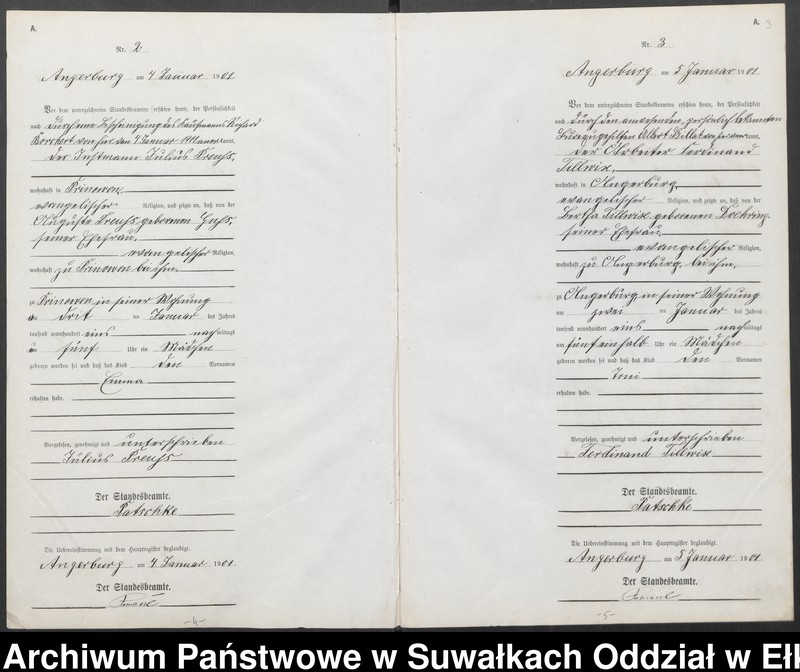 A.
Nr. 2
Angerburg am 4 Januar 1901
Vor dem unterzeichneten Standesbeamten erschien heute, der Persönlichkeit
nach durch eine Bescheinigung des Kaufmanns Richard
Borchert von hier vom 4 Januar 1901 anerkannt,
der Instmann Julius Preuß,
wohnhaft in Prinowen
evangelischer Religion, und zeigte an, daß von der
Auguste Preuß geborenen
seiner Ehefrau,
evangelischer Religion,
wohnhaft zu Prinowen bei ihm,
zu Prinowen in seiner Wohnung
am drit im Januar des Jahres
tausend neunhundert eins nachmittags
um fünf Uhr ein Mädchen
geboren worden sei und daß das Kind den Vornamen
Emma
erhalten habe.
Vorgelesen, genehmigt und unterschrieben
Julius Preuß
Der Standesbeamte.
Patschke
Die Uebereinstimmung mit dem Hauptregister beglaubigt.
Angerburg am 4 Januar 1901
Der Standesbeamte.
-4-
A. 3
Nr. 3
Angerburg am 5 Januar 1901
Vor dem unterzeichneten Standesbeamten erschien heute, der Persönlichkeit
nach durch den anwesenden, persönlich bekannten
Bureaugehilfen Albert kannt,
der Arbeiter Ferdinand
Tillwix,
wohnhaft in Angerburg,
evangelischer Religion, und zeigte an, daß von der
Bertha Tillwix geborenen Doehring
seiner Ehefrau
evangelischer Religion,
wohnhaft zu Angerburg, bei ihm,
zu Angerburg in seiner Wohnung
am zwei im Januar des Jahres
tausend neunhundert eins nachmittags
um fünf einhalb Uhr ein Mädchen
geboren worden sei und daß das Kind den Vornamen
Toni
erhalten habe.
Vorgelesen, genehmigt und unterschrieben
Ferdinand Tillwix
Der Standesbeamte.
Patschke
Die Uebereinstimmung mit dem Hauptregister beglaubigt.
Angerburg am 5 Januar 1901
Der Standesbeamte.
-5-
Archiwum Państwowe w Suwałkach Oddział w Eł